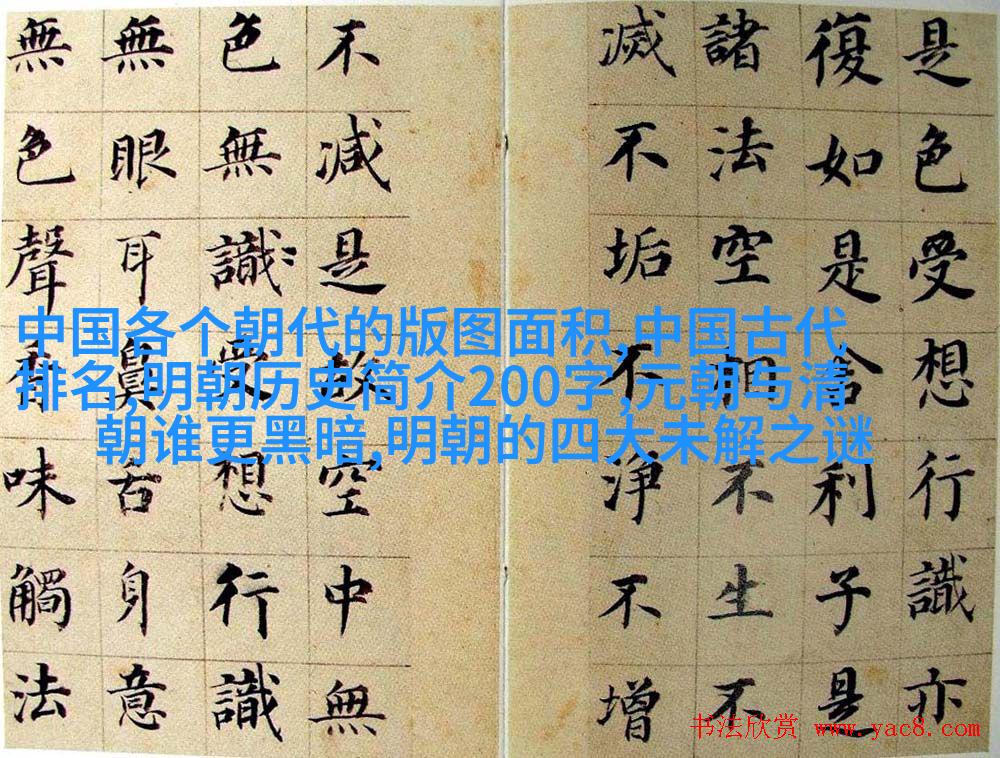 是色受想行識亦
復如是舍利子是
諸法空相不生不
滅不垢不淨不增
不減是故空中無
色無識受想行識
無眼耳鼻舌身意
無色聲香味觸法
中国各个朝代的版图面积,中国古代
排名,明朝历史简介200字,元朝与清
朝谁更黑暗,明朝的四大未解之谜
书法欣赏 www.yac8.com